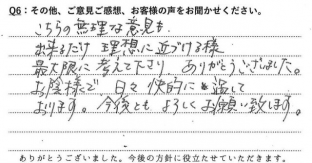 Q6：その他、ご意見ご感想、お客様の声をお聞かせください。
こちらの無理な意見も
出来るだけ 理想に近づける様
最大限に考えて下さり ありがとうございました。
お陰様で 日々 快的に過して
おります。今後とも よろしくお願い致します。
ありがとうございました。今後の方針に役立たせていただきます。